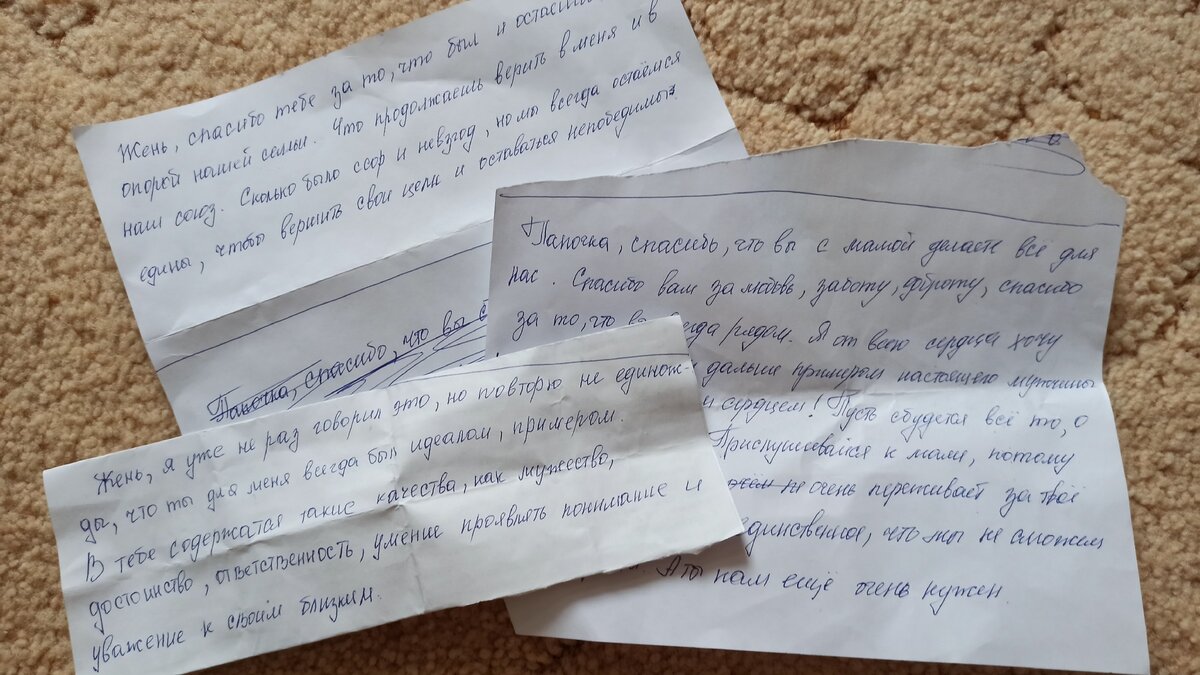 Жень, спасибо тебе за то, что был и остаёшься
опорой нашей семьи. Что продолжаешь верить в меня и в
наш союз. Сколько было ссор и невзгод, но мы всегда остаёмся
едины, чтобы вершить свои цели и оставаться непобедимы.
Папочка, спасибо, что вы с
Папочка, спасибо, что вы с мамой делаете всё для
нас. Спасибо вам за любовь, заботу, доброту, спасибо
за то, что рядом. Я от всего сердца хочу
дальше примером настоящего мужчины
и сердцем! Пусть сбудется всё то, о
Прислушивайся к маме, потому
очень переживает за твоё
единственное, что мы не сможем
А ты нам ещё очень нужен.
Жень, я уже не раз говорил это, но повторю не единож-
ды, что ты для меня всегда был идеалом, примером.
В тебе содержатся такие качества, как мужество,
достоинство, ответственность, умение проявлять понимание и
уважение к своим близким.